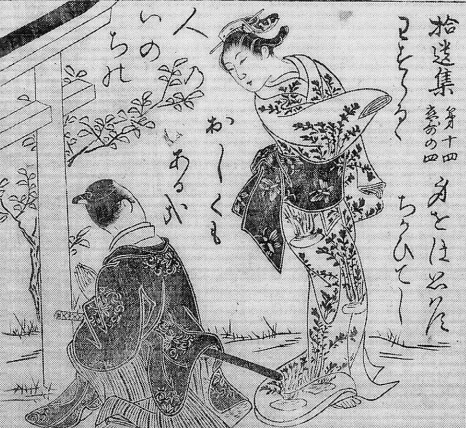 拾遺集
第十四
恋の四
わすらるゝ
身をは思はす
ちかひてし
人の
いのちの
おしくも
ある哉